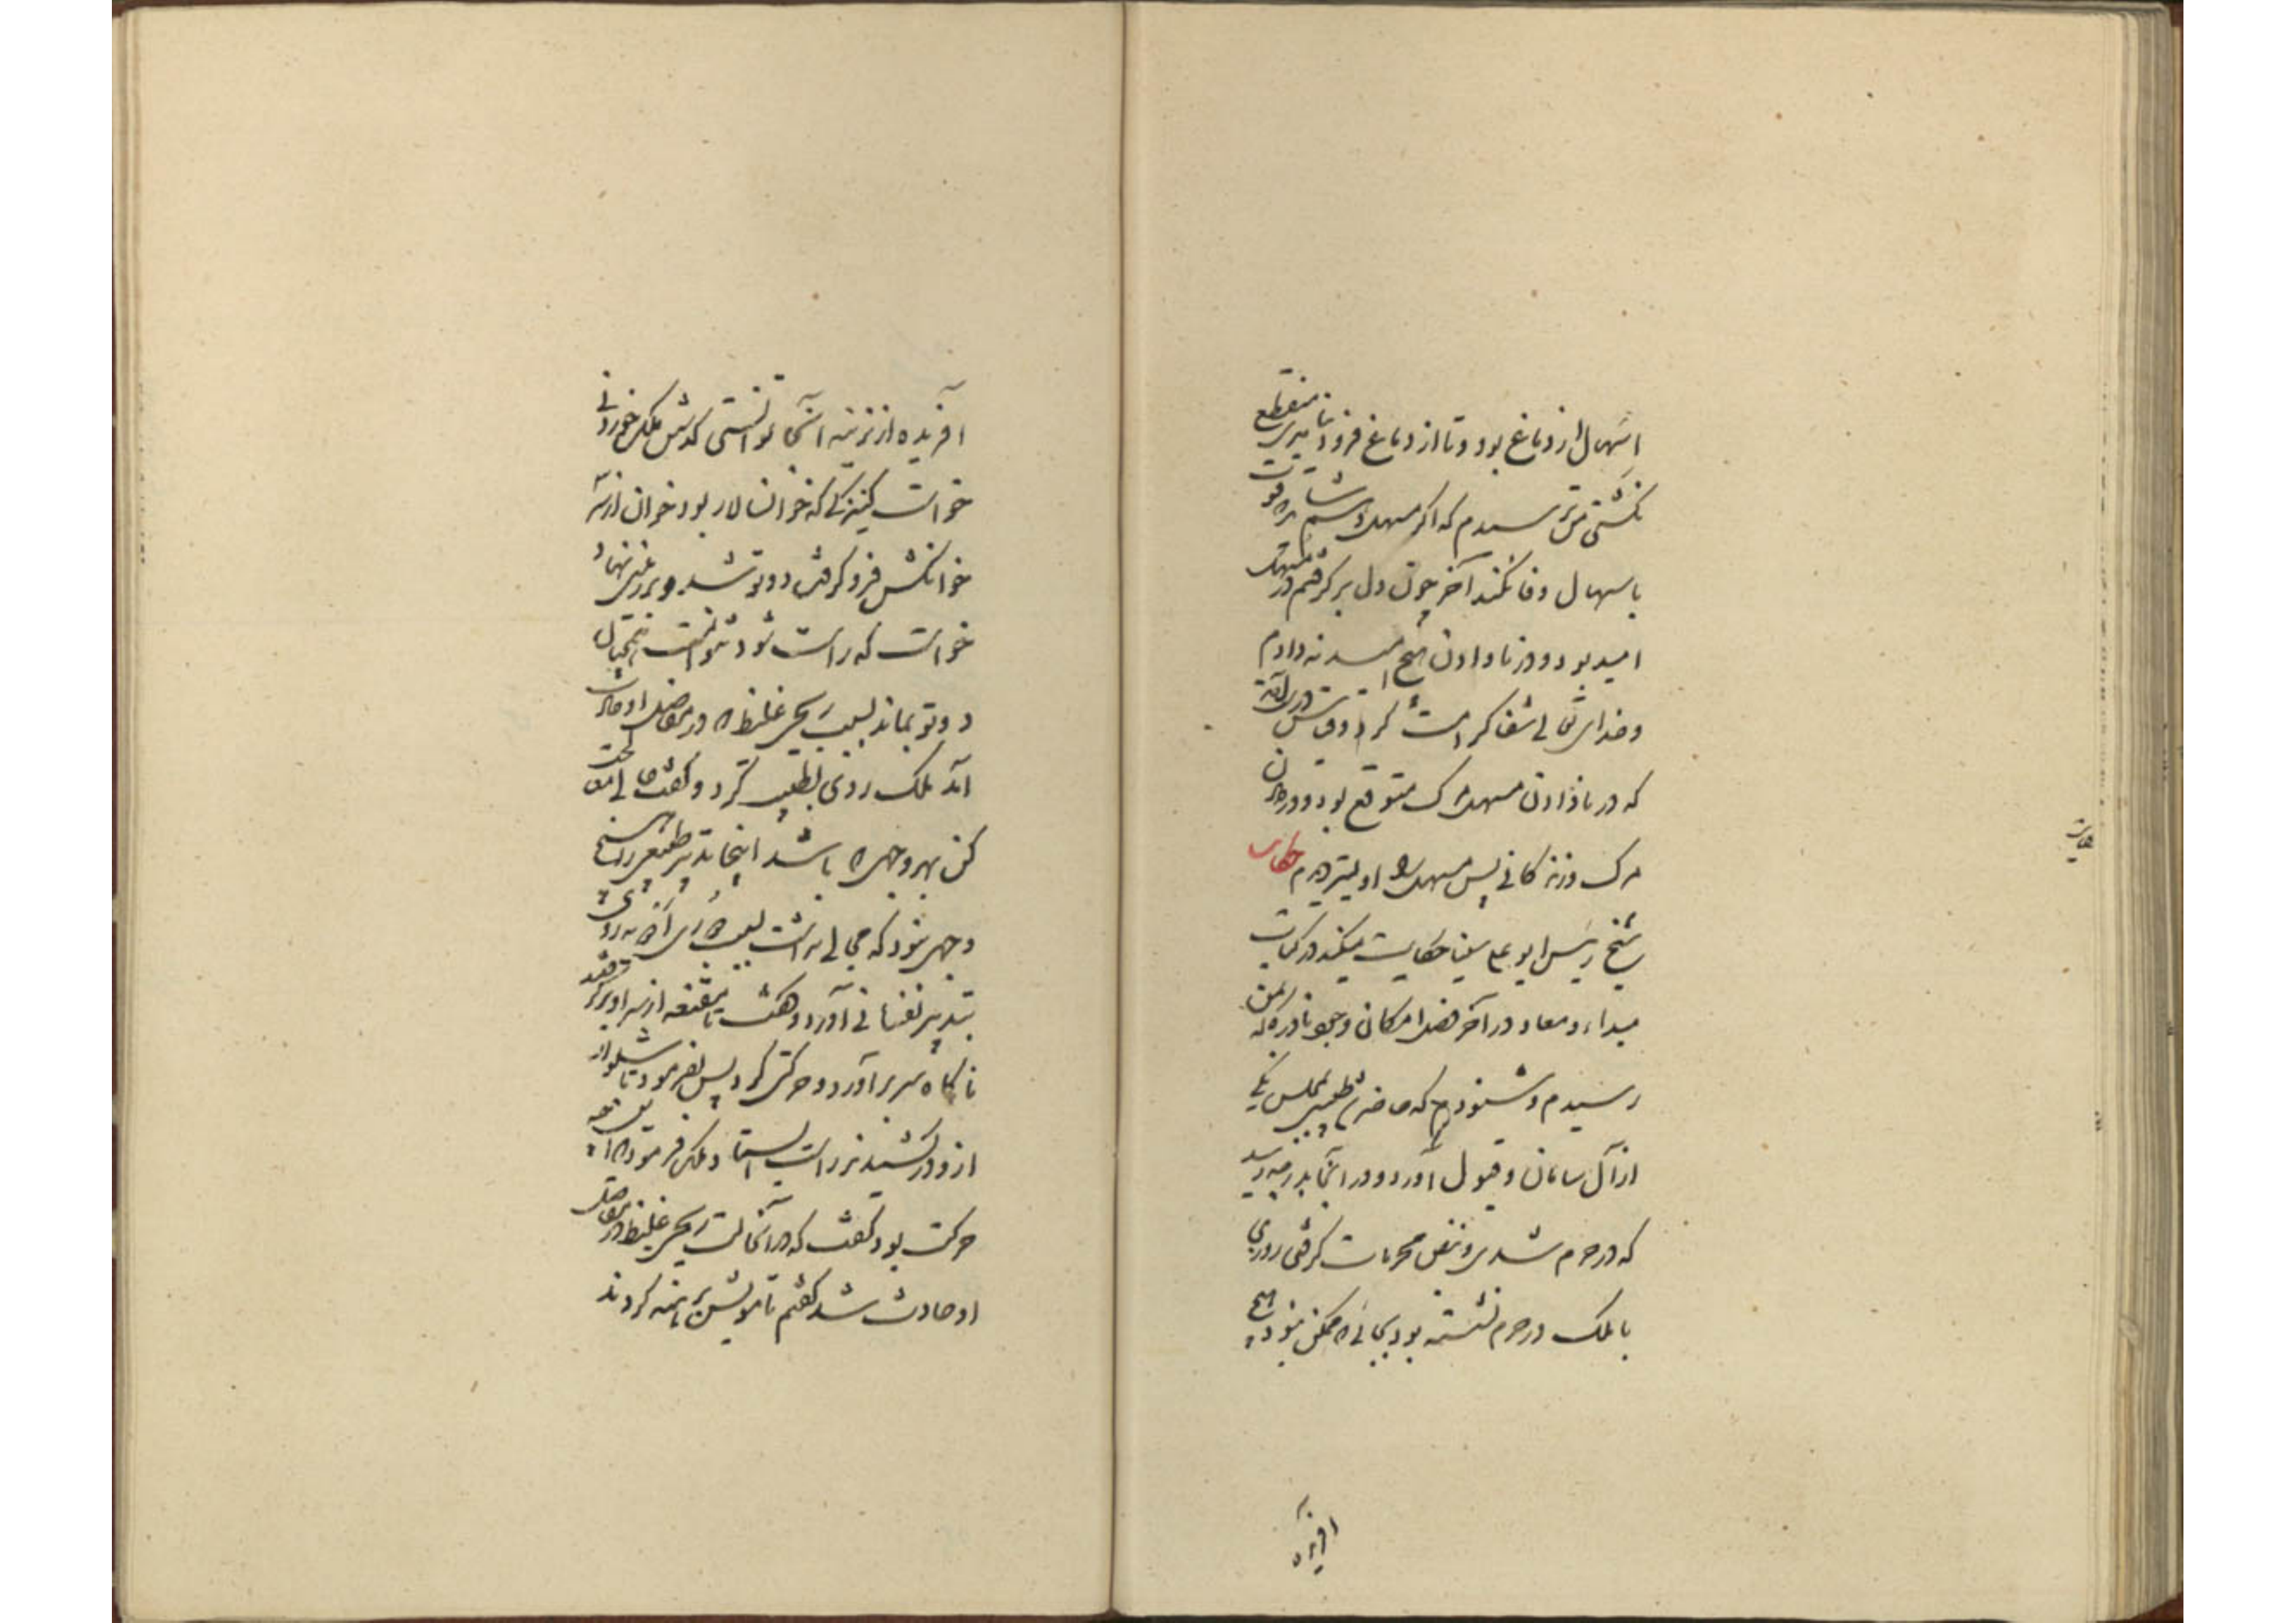 اسهال از دماغ بود و تا از دماغ فرود نیامدی منقطع
نگشتی من ترسیدم که اگر مسهل دهم شاید قوت
باسهال وفا نکند آخر چون دل برگرفتم در مسهل
امید بود و در نادادن هیچ امید نه دادم
و خدای تعالی شفا کرامت کرد و قیاس درست آمد
که در نادادن مسهل مرگ متوقع بود و در دادن
مرگ و زندگانی پس مسهل اولیتر دیدم حکایت
شیخ رئیس ابو علی سینا حکایت میکند در کتاب
مبداء و معاد در آخر فصل امکان وجود نادره که بمن
رسیدم و شنودم که حاضر طبیبی بمجلس یکی
از آل سامان و قبول او در آنجا بدرجه رسید
که در حرم شدی و نبض محرمات گرفتی روزی
با ملک در حرم نشسته بود بجائی که ممکن نبود هیچ
آفریده
آفریده از نرینه آنجا توانستی گذشتن ملک خوردنی
خواست کنیزکی که خوانسالار بود خوان از سر
خوانکش فرو گرفت دوتو شد و بر زمین نهاد
خواست که راست شود نتوانست همچنان
دوتو بماند بسبب ریحی غلیظ که در مفاصل او حادث
آمد ملک روی بطبیب کرد و گفت حالی معالجت
کن بهر وجهی که باشد اینجا تدبیر طبیعی را هیچ
وجهی نبود که مجالی نداشت بسبب ادویه روی
بتدبیر نفسانی آورد و گفت تا مقنعه از سر او برگرفتند
ناگاه سر برآورد و حرکتی کرد پس بفرمود تا شلوار
ازو در کشیدند راست بایستاد ملک فرمود که این چه
حرکت بود گفت که در آنحالت ریحی غلیظ در مفاصل
او حادث شد گفتم تا مویش برهنه کردند
حکایت